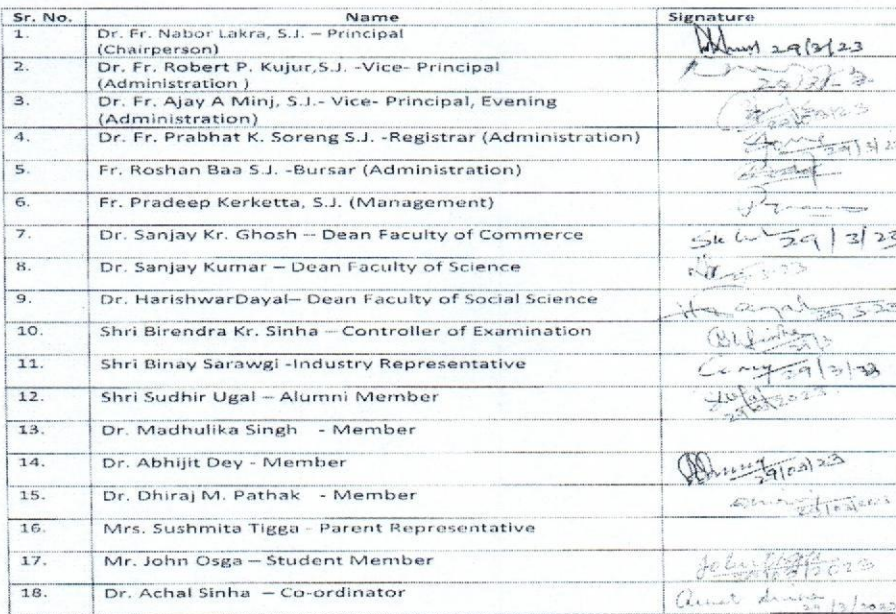 Sr. No. Name Signature
1. Dr. Fr. Nabor Lakra, S.J. – Principal
(Chairperson) 29/3/23
2. Dr. Fr. Robert P. Kujur,S.J. -Vice- Principal
(Administration )
3. Dr. Fr. Ajay A Minj, S.J.- Vice- Principal, Evening
(Administration)
4. Dr. Fr. Prabhat K. Soreng S.J. -Registrar (Administration)
5. Fr. Roshan Baa S.J. -Bursar (Administration)
6. Fr. Pradeep Kerketta, S.J. (Management)
7. Dr. Sanjay Kr. Ghosh – Dean Faculty of Commerce 29/3/23
8. Dr. Sanjay Kumar – Dean Faculty of Science
9. Dr. HarishwarDayal– Dean Faculty of Social Science
10. Shri Birendra Kr. Sinha – Controller of Examination 29/3
11. Shri Binay Sarawgi -Industry Representative
12. Shri Sudhir Ugal – Alumni Member
13. Dr. Madhulika Singh - Member
14. Dr. Abhijit Dey - Member 29/03/23
15. Dr. Dhiraj M. Pathak - Member
16. Mrs. Sushmita Tigga - Parent Representative
17. Mr. John Osga – Student Member
18. Dr. Achal Sinha – Co-ordinator